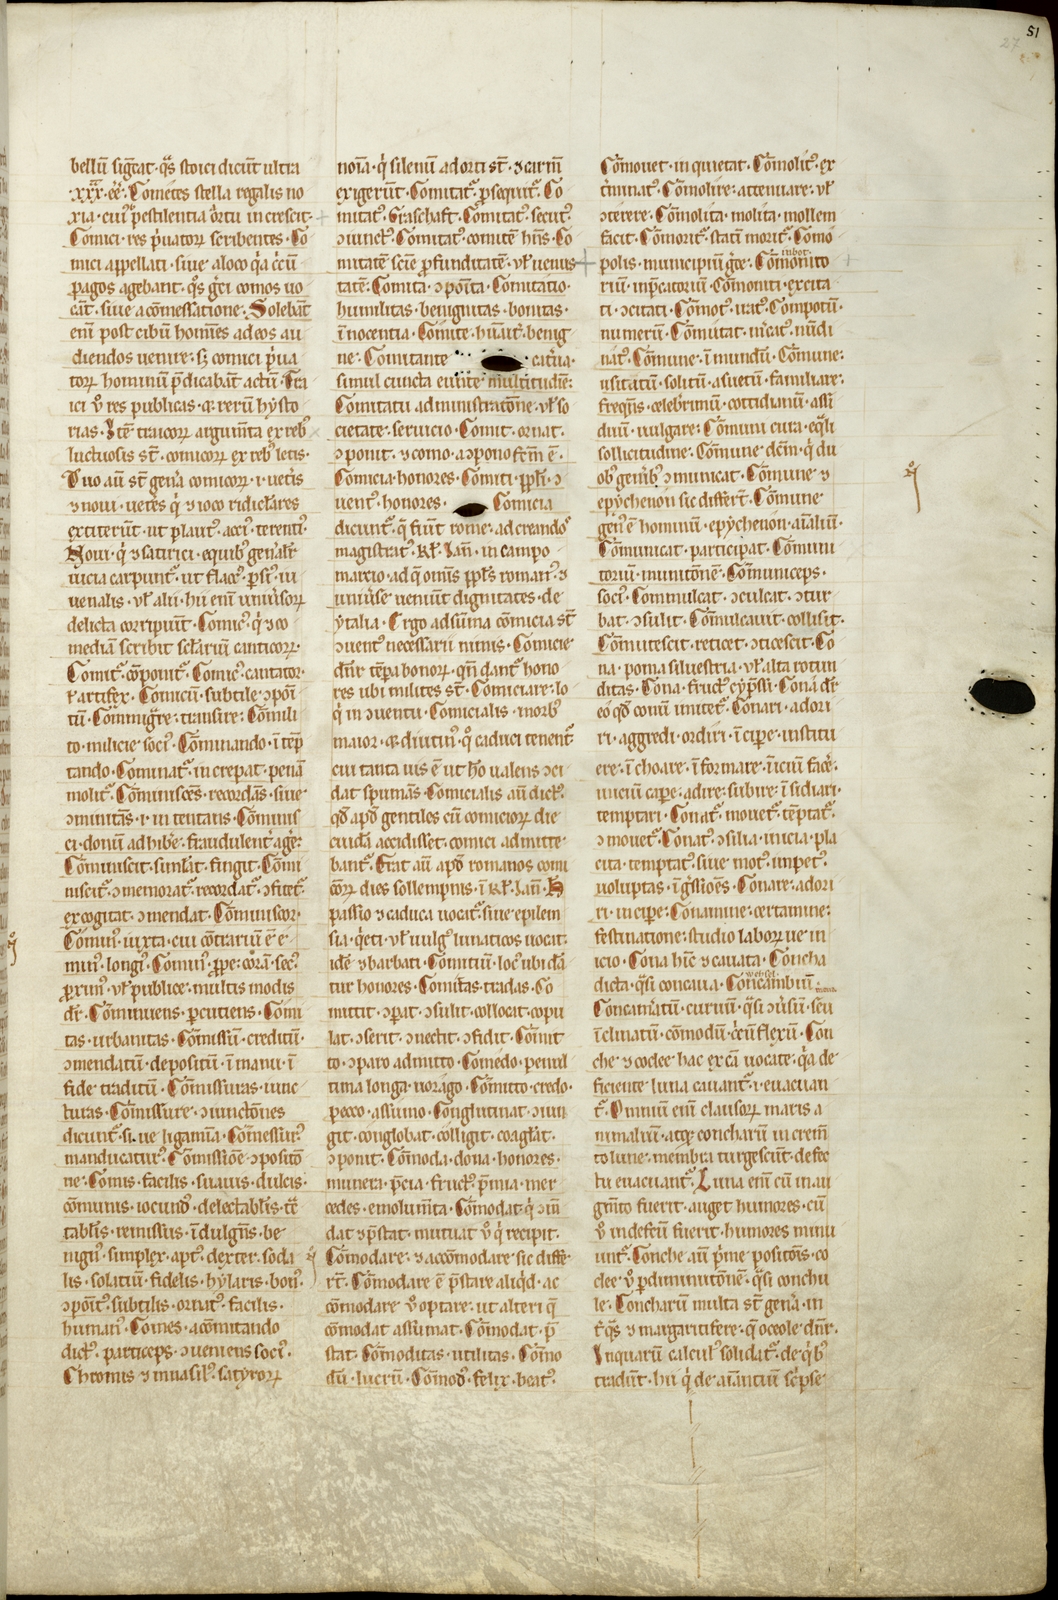 51
27
bellū sigͤcat · qͣs stoici dicūt ultra
· xxx · eē · Cometes stella regalis no
xia · cuiꝰ pestilentia ortu in crescit ·
Comici · res p̍uatoꝝ scribentes · Co
mici appellati · siue a loco qͥa cͥcū
pagos agebant · qͦs gͥci comos uo
cāt · siue a cōmessatione · Solebāt
eni̅ post cibū homīes ad eos au
diendos uenire · sꝫ comici p̍ua
toꝝ hominū p̄dicabāt actū · Tra
ici ꝟ res publicas · ⁊ rerū hysto
rias · Itē traicoꝝ argumta ex rebꝰ
luctuosis st̄ · comicoꝝ ex rebꝰ letis ·
Duo aū st̄ genͣa comicoꝝ · i · uetͥs
⁊ noui · uetͥs qͥ ⁊ ioco ridiclares
extiterūt · ut plautꝰ · accꝰ · terentꝰ ·
Noui · qͥ ⁊ satirici · equibꝰ genalꝰ
uicia carpunt᷑ · ut flaccꝰ · psiꝰ · iu
uenalis · ul̕ alii · hii eni̅ uniūsoꝝ
delicta corripiūt · Comicꝰ · qͥ ⁊ co
mediā scribit sclariū canticoꝝ ·
Comit᷑ · cōponit᷑ · Comicꝰ · cantator
ul̕ artifex · Comicū · subtile · ↄpoī
tū · Cōmigͣre · transire · Cōmili
to · milicie sociꝰ · Cōminando · i tēp
tando · Cominat᷑ · increpat · penā
molit᷑ · Cōminiscēs · recordās · siue
Cōmuniscit · simlat · fingit · Cōmi
niscit᷑ · ↄmemorat᷑ · recordat᷑ · ↄfitet᷑
excogitat · ↄmendat · Cōminiscor ·
Cominꝰ · iuxta · cui cōtrariū ē e
minꝰ · longiꝰ · Cominꝰ · ꝓpe · corā · secꝰ ·
ꝓximꝰ · ul̕ publice · multis modis
dr̄ · Cōminuens · ꝑcutiens · Comi
tas · urbanitas · Cōmissū · creditū ·
ↄmendatū · depositū · i manu · i
fide traditū · Cōmissuras · iunc
turas · Cōmissure · ↄiunctōnes
dicunt᷑ · siue ligamīa · Cōmessur᷑
manducatur᷑ · Cōmissiōe · ↄpositō
ne · Comis · facilis · suauis · dulcis ·
cōmunis · iocundꝰ · delectabl̕is · tͣc
tabl̕is · remissus · idulgēs · be
nignꝰ · simplex · aptꝰ · dexter · soda
lis · solatiū · fidelis · hylaris · bonꝰ ·
ↄpoītꝰ · subtilis · ornatꝰ · facilis ·
humanꝰ · Comes · acōmitando
dictꝰ · particeps · ↄueniens sociꝰ ·
Chromis ⁊ inuasilꝰ · satyroꝝ
nomīa · qͥ silenū adorti st̄ · ⁊ carm̄
exigerūt · Comitat᷑ · ꝓsequit᷑ · Co
mitatꝰ · Graschaft · Comitatꝰ · secutꝰ ·
ↄiunctꝰ · Comitatꝰ · comitē hn̄s · Co
mitatē · sciē ꝓfunditatē · ul̕ uenus
tatē · Comita · ↄpoīta · Comitatio ·
humilitas · benignitas · bonitas ·
inocentia · Comite · humāit᷑ · benig
ne · Comitante · caterua ·
simul cuncta eunte multitudīe ·
Comitatu · administratōne · ul̕ so
cietate · seruicio · Comit · ornat ·
ↄponit · ⁊ como · a ↄpono fcm̄ ē ·
Comicia · honores · Comiti · ppl̕i · ↄ
uentꝰ · honores · Comicia
dicunt᷑ · q̄ fiunt rome · ad creandoˢ
magistratꝰ · kl̕ · Jan̄ · in campo
marcio · ad q̄ omīs ppl̕s romanꝰ · ⁊
uniūse ueniūt dignitates · de
ytalia · Ergo adsūma comicia st̄
ↄuentꝰ necessarii nimis · Comicie
dn̄r tēpa honoꝝ · qn̄ dant᷑ hono
res ubi milites st̄ · Comiciare · lo
qͥ in ↄuentu · Comicialis · morbꝰ
maior · ⁊ diutinꝰ · qͦ caduci tenent᷑
cui tanta uis ē ut hō ualens ↄci
dat spumās · Comicialis aū dictꝰ
qd̄ apd̄ gentiles cū comicioꝝ die
cuidā accidisset · comici admitte
bant᷑ · Erat aū apd̄ romanos comi
cioꝝ dies sollempnis · i kl̕ · Jan̄ · H
passio ⁊ caduca uocat᷑ · siue epilem
sia · qͥeti · ul̕ uulgꝰ lunaticos uocat ·
idē ⁊ barbati · Comitiū · locꝰ ubi dā
tur honores · Comitas · tradas · Co
mittit · ↄpat · ↄsulit · collocat · copu
lat · ↄserit · ↄnectit · ↄfidit · Comit
to · ↄparo admitto · Comedo · penul
tima longa · uorago · Cōmitto · credo ·
pecco · assumo · Conglutinat · ↄiun
git · conglobat · colligit · coagl̕at ·
ↄponit · Cōmoda · dona · honores ·
munera · p̄cia · fructꝰ · p̄mia · mer
cedes · emolumta · Cōmodat · qͥ ↄm
dat ⁊ p̄stat · mutuat ꝟ qͥ recipit ·
Cōmodare · ⁊ accōmodare · sic diffe
rt᷑ · Cōmodare ē p̄stare aliqͥd · ac
cōmodare ꝟ optare · ut alteri q̄
cōmodat assumat · Cōmodat · p̄
stat · Cōmoditas · utilitas · Cōmo
dū · lucrū · Cōmodꝰ · felix · beatꝰ ·
Cōmouet · in quietat · Cōmolitꝰ · ex
tͥminatꝰ · Cōmolire · attenuare · ul̕
ↄterere · Cōmolita · molita · mollem
facit · Cōmorit᷑ · statī morit᷑ · Como
polis · municipiū gͥce · Cōmonito
inbot
riū · inpcatoriū · Cōmoniti · excita
ti · ↄcitati · Cōmotꝰ · iratꝰ · Compotū ·
numerū · Cōmutat · mͥcatꝰ · mūdi
natꝰ · Cōmune · imundū · Cōmune ·
usitatū · solitū · asuetū · familiare ·
freqn̄s · celebrimū · cottidianū · assi
duū · uulgare · Cōmuni cura · eqͣli
sollicitudine · Cōmune dcm̄ · qͥ du
obꝰ genibꝰ ↄmunicat · Cōmune ⁊
epychenon sic differt᷑ · Cōmune
genꝰ ē hominū · epychenon · aīaliū ·
Cōmunicat · participat · Cōmuni
toriū · munitōnē · Cōmuniceps ·
sociꝰ · Commulcat · ↄculcat · ↄtur
bat · ↄsulit · Cōmulcauit · collisit ·
Cōmutescit · reticet · ↄticescit · Co
na · poma siluestria · ul̕ alta rotun
ditas · Cona · fructꝰ cypssi · Cona dr̄
eo qd̄ conū imitet᷑ · Conari · adori
ri · aggredi · ordiri · icipe · institu
ere · ichoare · iformare · iniciū facͤe ·
iniciū capͤe · adire · subire · isidiari ·
temptari · Conat᷑ · mouet᷑ · tēptat᷑ ·
ↄmouet᷑ · Conatꝰ · ↄsilia · inicia · pla
cita · temptatꝰ · siue motꝰ · impetꝰ ·
uoluptas · igͥssiōes · Conare · adori
ri · incipe · Conamine · certamine ·
festinatione · studio laboꝝ ue in
icio · Cona hinc ⁊ cauata · Concha
dicta · qͣsi concaua · Concambiū ·
wehsel
Concamatū · curuū · qͣsi ↄuͥsū · seu
iclinatū · cōmodū · cͥcūflexū · Con
che ⁊ codee hac ex cā uocate · qͥa de
ficiente luna cauant᷑ · i · euacuan
t᷑ · Omniū eni̅ clausoꝝ maris a
nimaliū · atqꝫ concharū in crem̄
to lune · membra turgescūt · defec
tu euacuant᷑ · Luna eni̅ cū in au
gmto fuerit · auget humores · cū
ꝟ in defectū fuerit · humores minu
unt᷑ · Conche aū p̍me positōīs · co
clee ꝟ ꝑ diminutōnē · qͣsi conchu
le · Concharū multa st̄ genͣa · in
t᷑ qͣs ⁊ margaritifere · q̄ oceole dn̄r ·
Inquarū calculꝰ solidat᷑ · de qͥbꝰ
tradūt · hii qͥ de aīantiū scpse